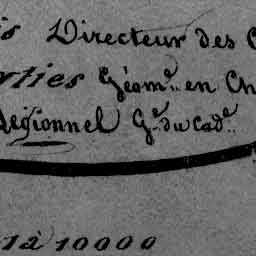 is Directeur des C
rties Géom.e en Ch
Régionnel G.e du Cad.e
1 à 10000